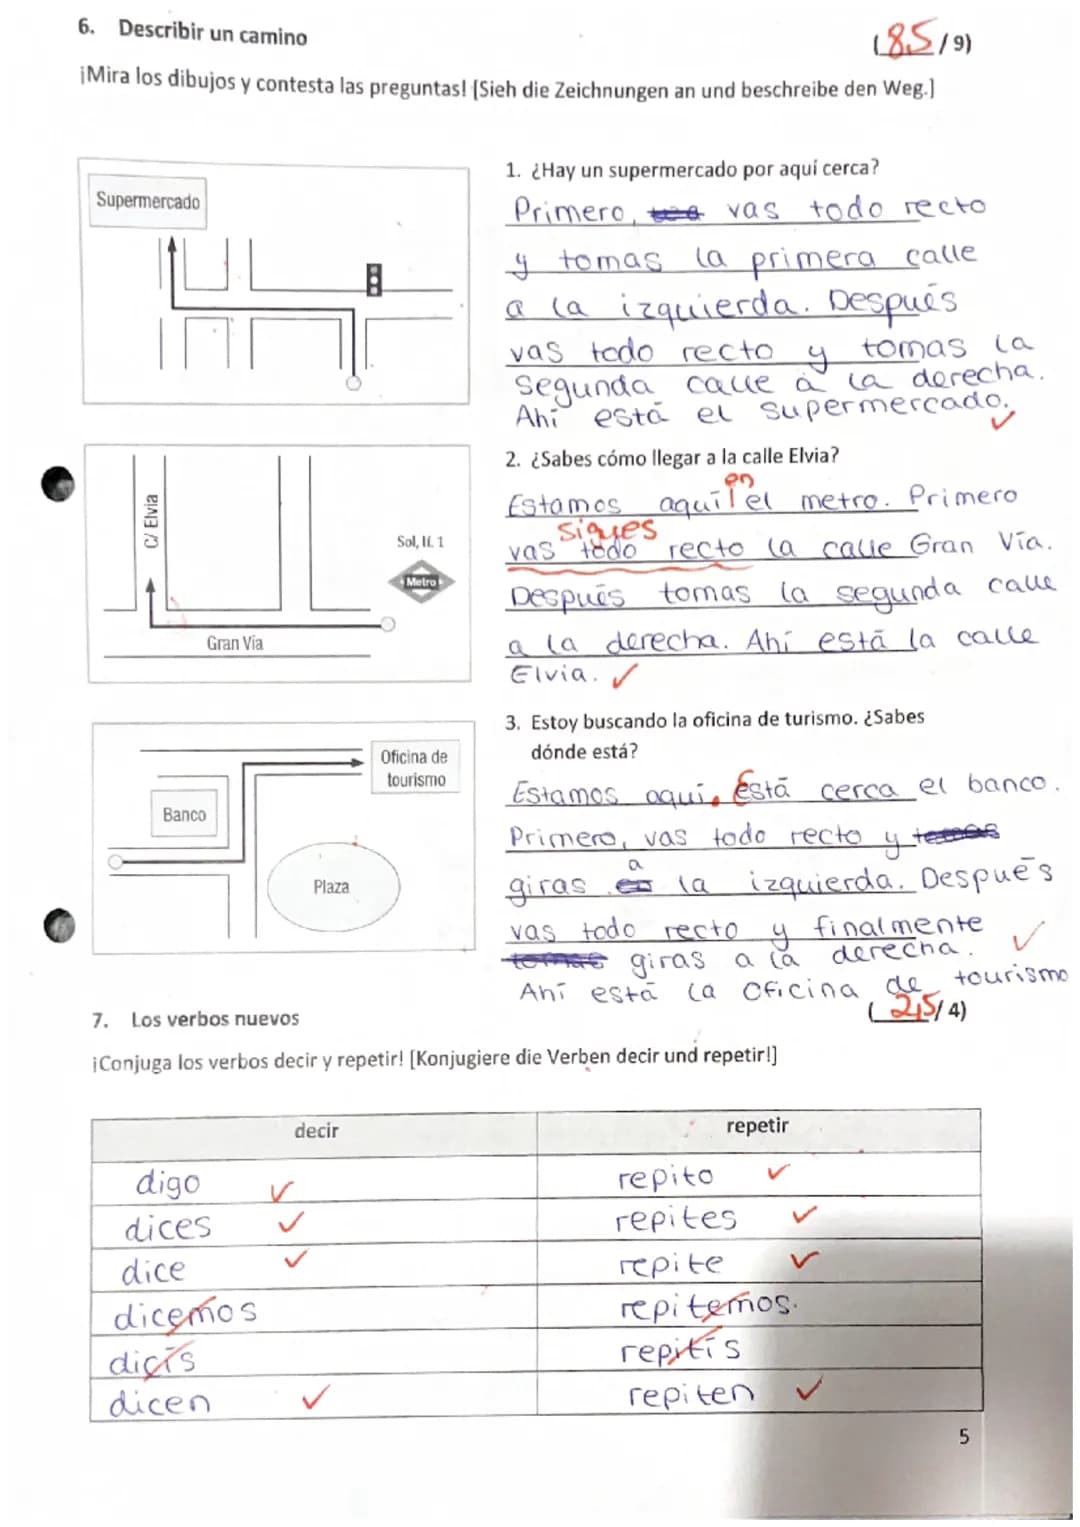 6. Describir un camino
(8,5/9)
¡Mira los dibujos y contesta las preguntas! [Sieh die Zeichnungen an und beschreibe den Weg.]
Supermercado
1. ¿Hay un supermercado por aquí cerca?
Primero, vas todo recto
y tomas la primera calle
a la izquierda. Después
vas todo recto y tomas la
segunda calle a la derecha.
Ahí está el supermercado.
C/ Elvia
Sol, lí. 1
Metro
Gran Vía
2. ¿Sabes cómo llegar a la calle Elvia?
en
Estamos aquí el metro. Primero
sigues
vas todo recto la calle Gran Vía.
Después tomas la segunda calle
a la derecha. Ahí está la calle
Elvia.
Banco
Oficina de
tourismo
Plaza
3. Estoy buscando la oficina de turismo. ¿Sabes
dónde está?
Estamos aquí. Está cerca el banco.
Primero, vas todo recto y tomas
giras a la izquierda. Después
vas todo recto y finalmente
tomas giras a la derecha.
Ahí está la oficina de tourismo
(2,5/4)
7. Los verbos nuevos
¡Conjuga los verbos decir y repetir! [Konjugiere die Verben decir und repetir!]
decir repetir
digo repito
dices repites
dice repite
dicemos repitemos.
dicís repitís
dicen repiten
5